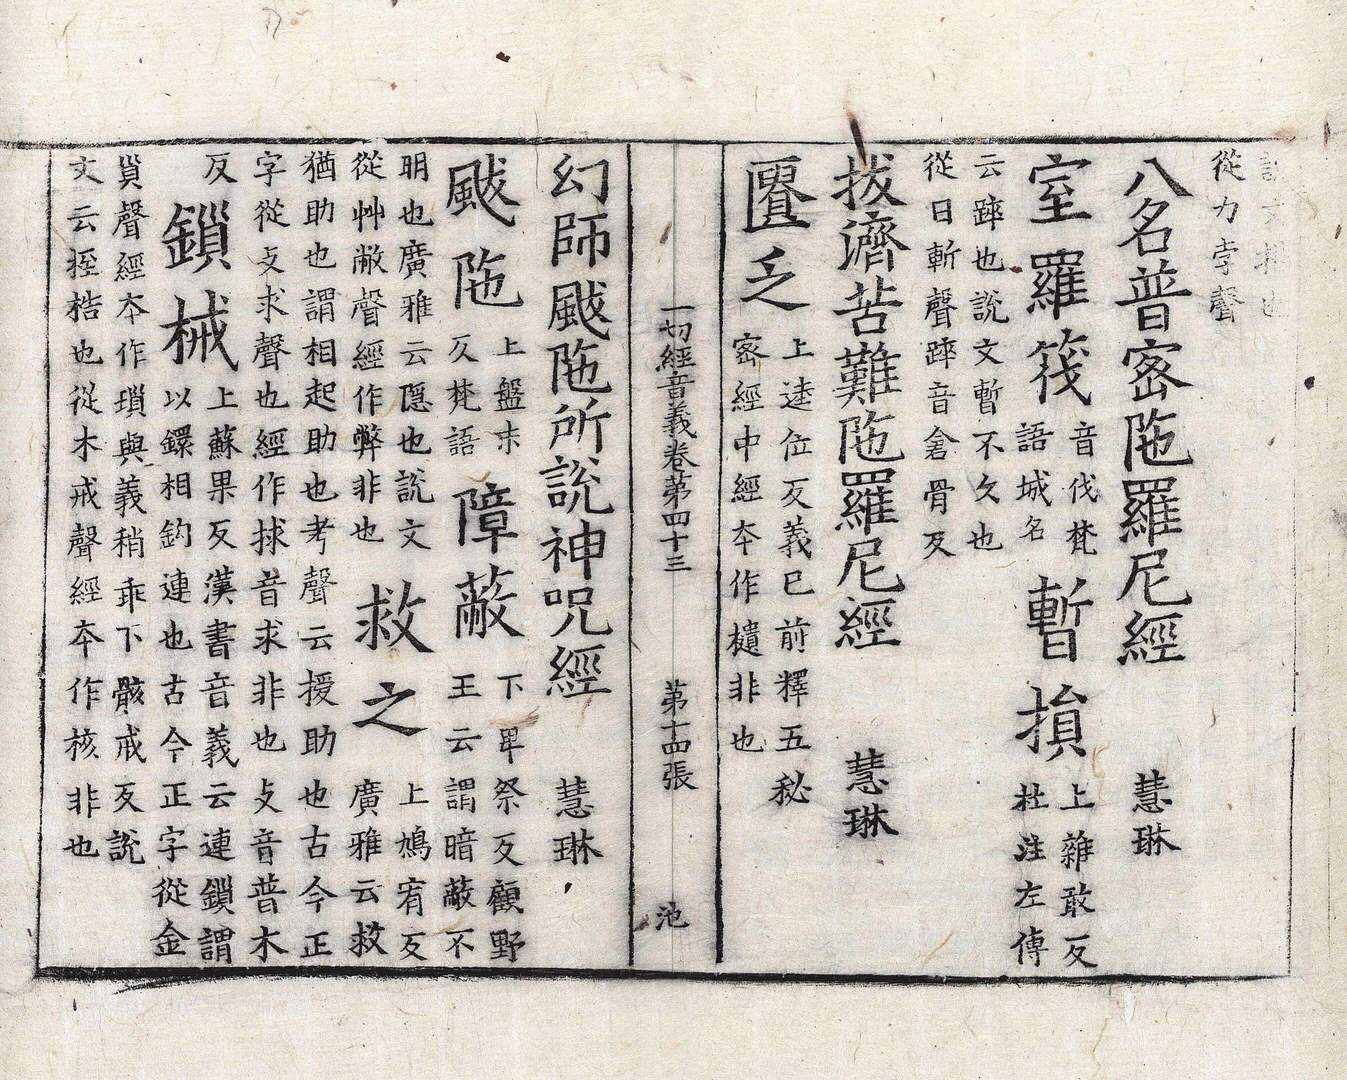 說文排也
從力孛聲
八名普密陁羅尼經 慧琳
室羅筏 音伐梵
語城名 暫損 上雜敢反
杜注左傳
云踤也說文暫不久也
從日斬聲踤音倉骨反
拔濟苦難陁羅尼經 慧琳
匱乏 上逵位反義已前釋五秘
密經中經本作樻非也
一切經音義卷第四十三 第十四張 池
幻師颰陁所說神呪經 慧琳
颰陁 上盤末
反梵語 障蔽 下卑祭反顧野
王云謂暗蔽不
明也廣雅云隱也說文
從艸敝聲經作弊非也 救之 上鳩宥反
廣雅云救
猶助也謂相起助也考聲云援助也古今正
字從攴求聲也經作捄音求非也攴音普木
反 鎖械 上蘇果反漢書音義云連鎖謂
以鐶相鈎連也古今正字從金
𧴪聲經本作瑣與義稍乖下骸戒反說
文云桎梏也從木戒聲經本作核非也